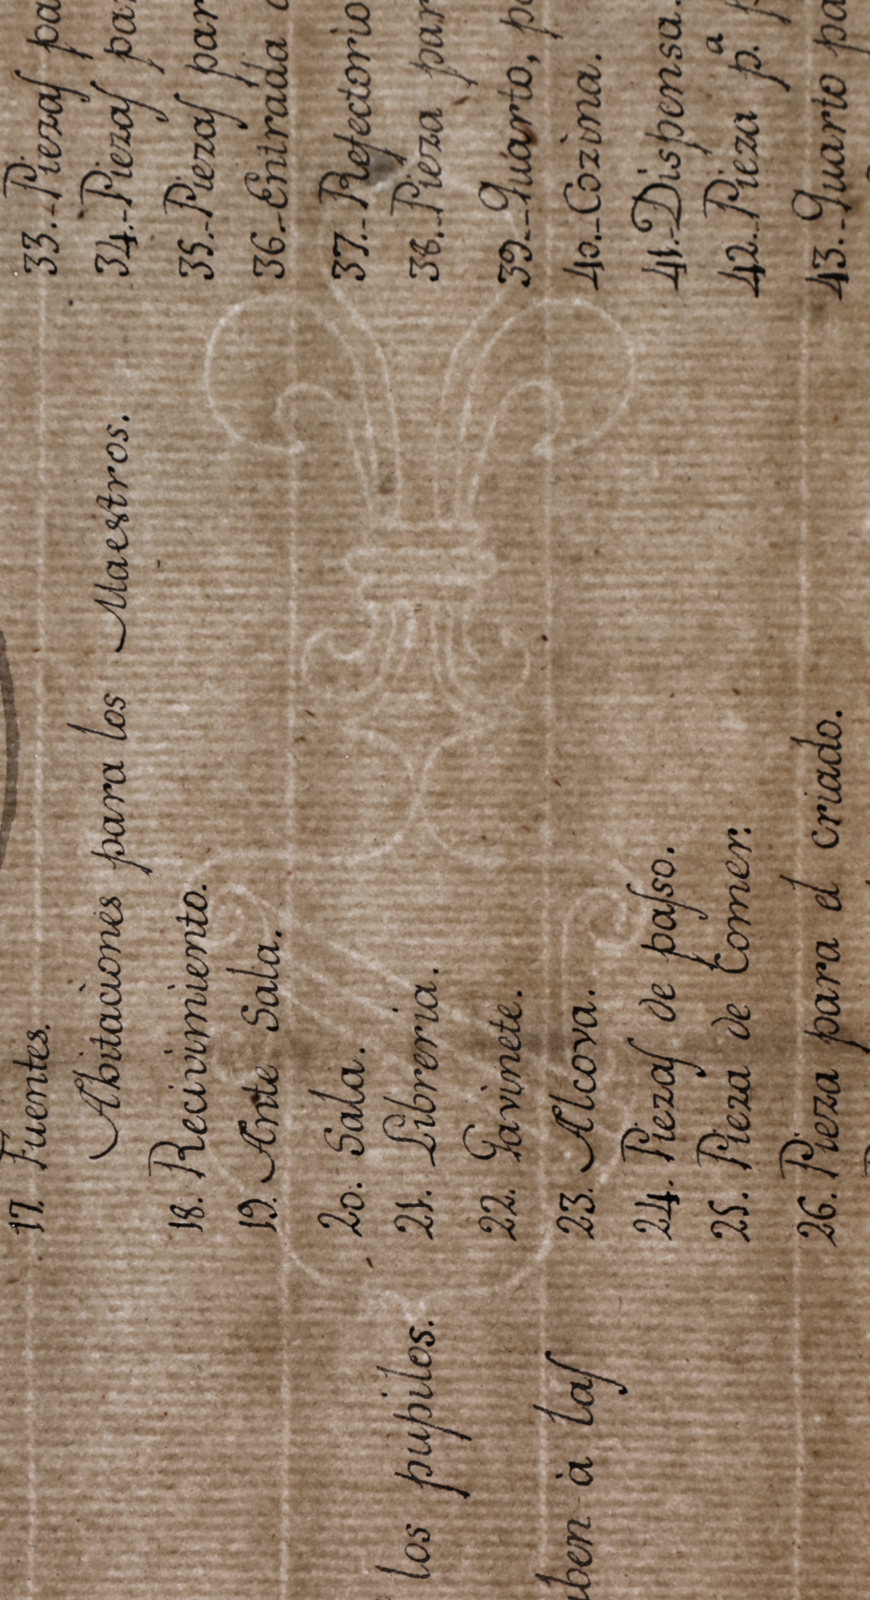 los pupilos.
ben à las
17. Fuentes.
Abitaciones para los Maestros.
18. Recivimiento.
19. Ante Sala.
20. Sala.
21. Libreria.
22. Gavinete.
23. Alcova.
24. Piezas de passo.
25. Pieza de Comer.
26. Pieza para el criado.
33.-Piezas pa
34.-Piezas par
35.-Piezas par
36.-Entrada
37.-Refectorio
38.-Pieza par
39.-Quarto, p
40.-Cozina.
41.-Dispensa.
42.-Pieza p.ª p
43.-Quarto pa